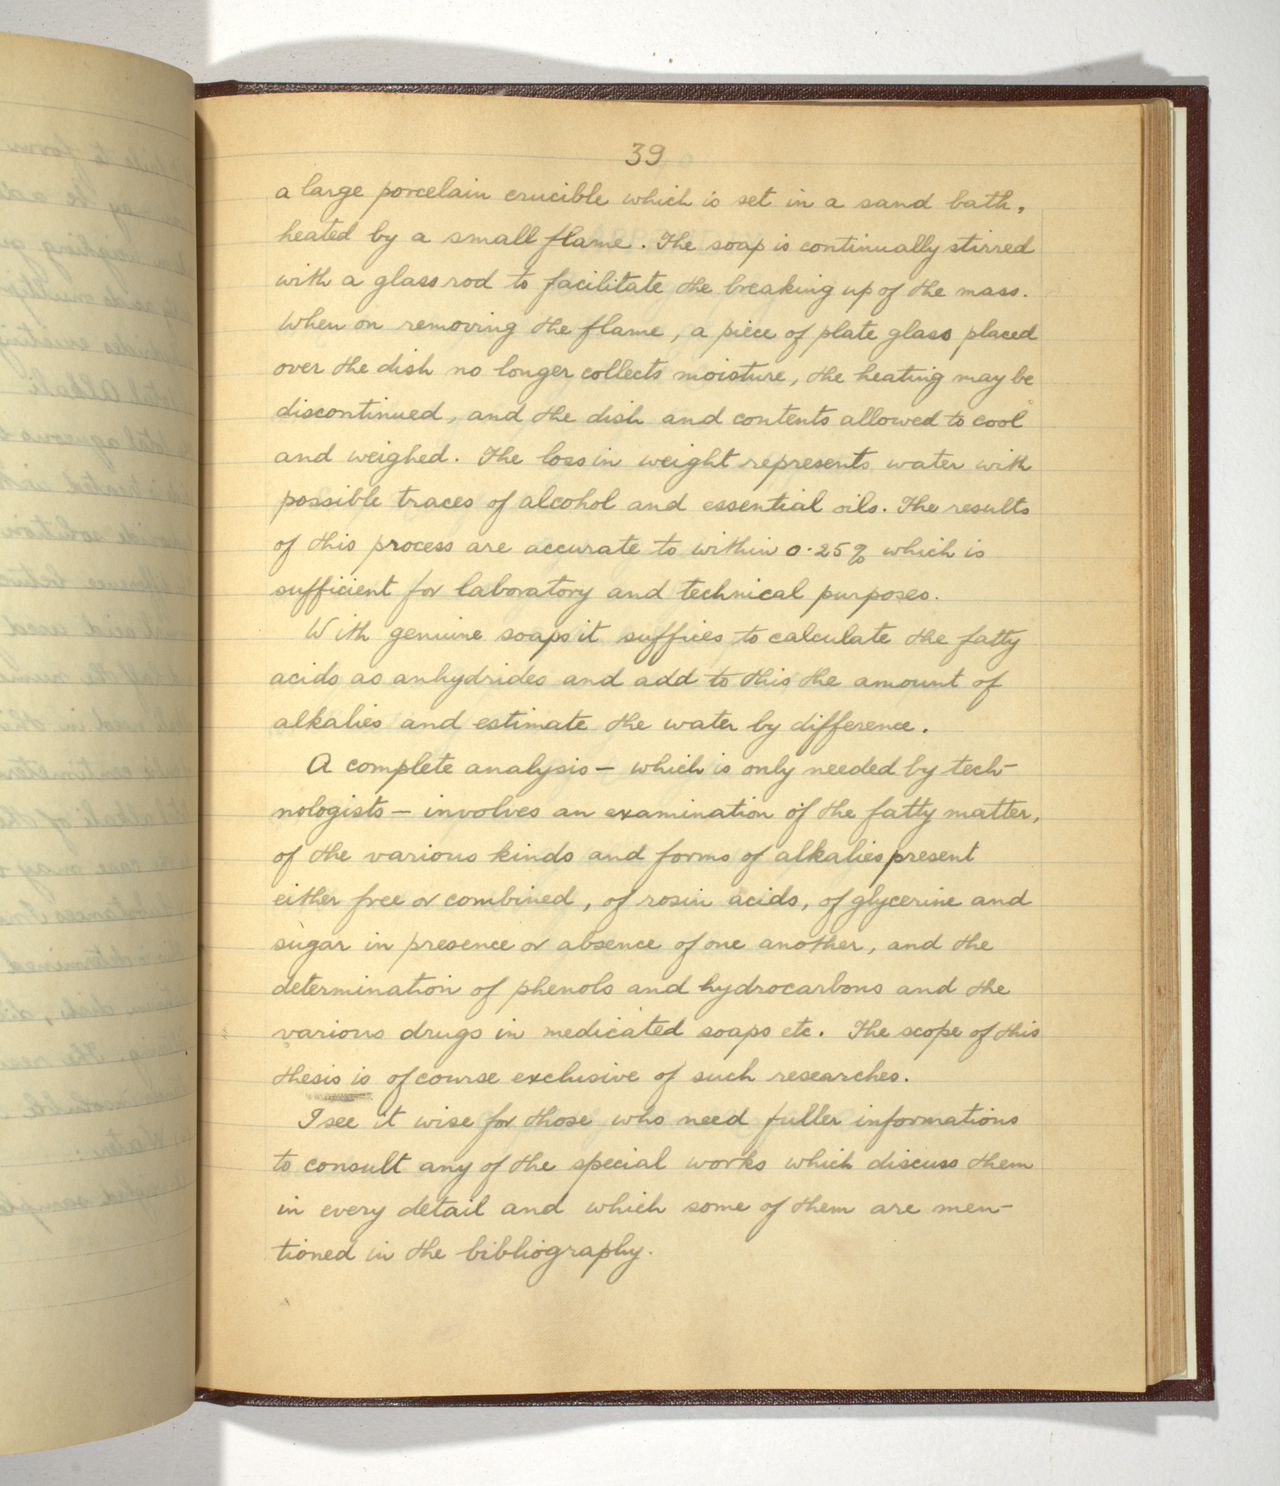 39
a large porcelain crucible which is set in a sand bath,
heated by a small flame. The soap is continually stirred
with a glass rod to facilitate the breaking up of the mass.
When on removing the flame, a piece of plate glass placed
over the dish no longer collects moisture, the heating may be
discontinued, and the dish and contents allowed to cool
and weighed. The loss in weight represents water with
possible traces of alcohol and essential oils. The results
of this process are accurate to within 0.25% which is
sufficient for laboratory and technical purposes.
With genuine soaps it suffices to calculate the fatty
acids as anhydrides and add to this the amount of
alkalies and estimate the water by difference.
A complete analysis — which is only needed by tech-
nologists — involves an examination of the fatty matter,
of the various kinds and forms of alkalies present
either free or combined, of rosin acids, of glycerine and
sugar in presence or absence of one another, and the
determination of phenols and hydrocarbons and the
various drugs in medicated soaps etc. The scope of this
thesis is of course exclusive of such researches.
I see it wise for those who need fuller informations
to consult any of the special works which discuss them
in every detail and which some of them are men-
tioned in the bibliography.